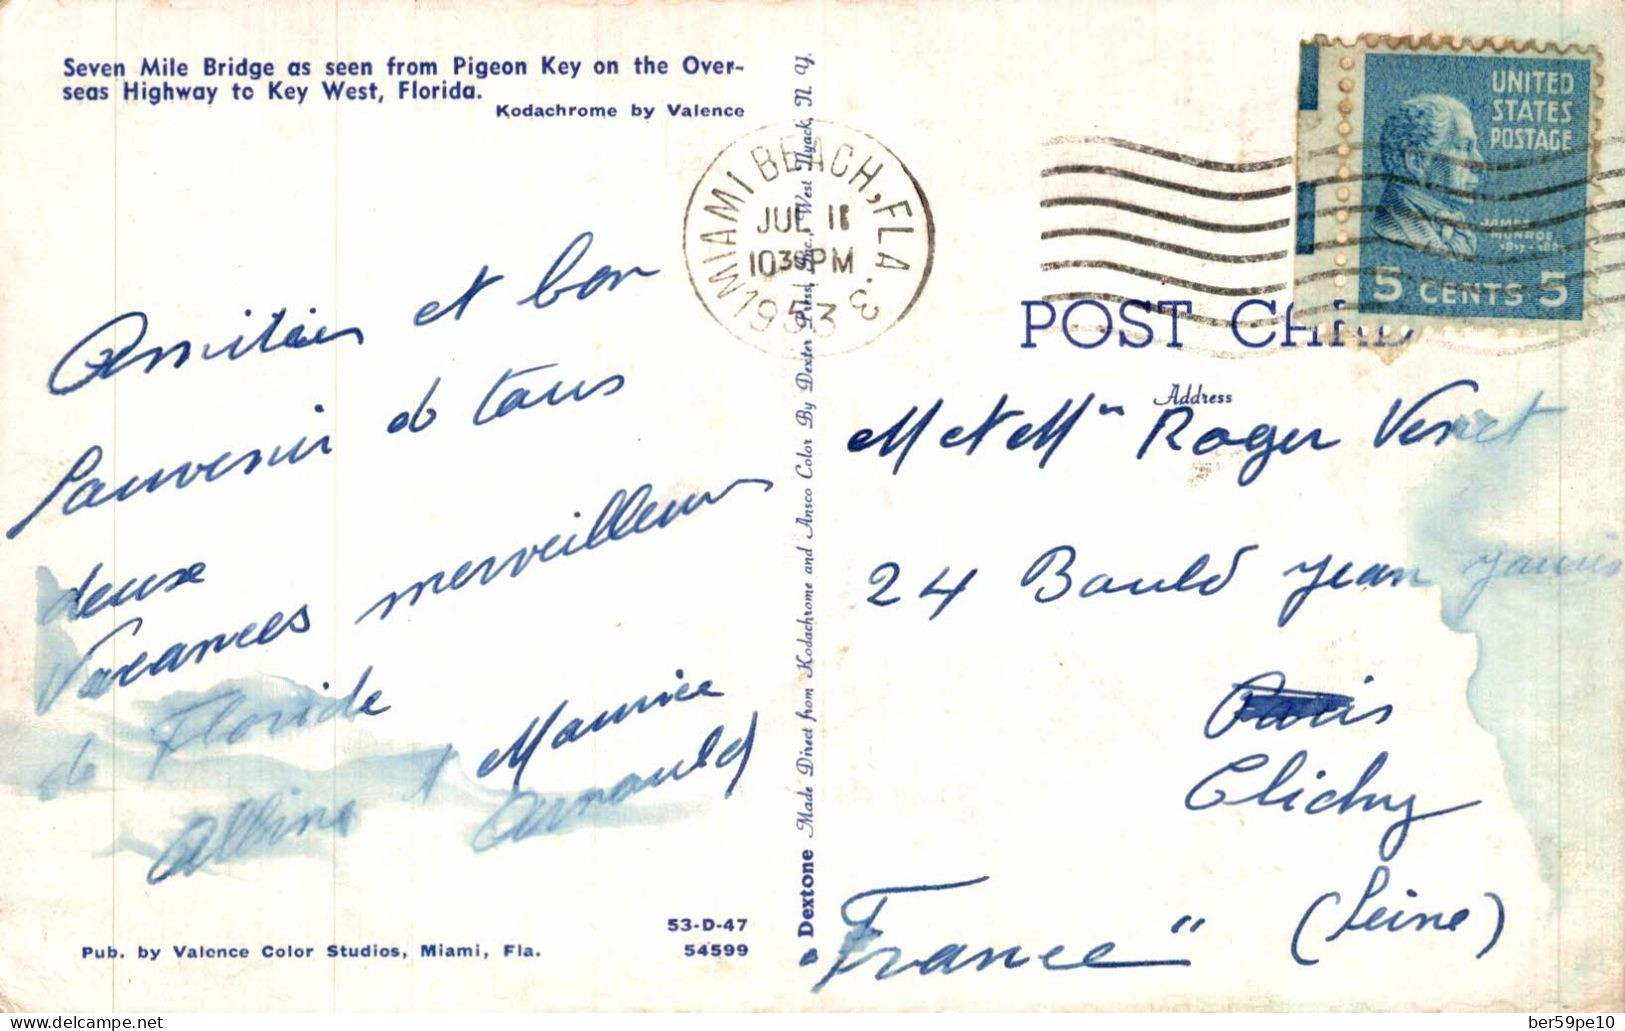 Seven Mile Bridge as seen from Pigeon Key on the Over-
seas Highway to Key West, Florida.
Kodachrome by Valence
Amitiés et bon
Souvenir de tous
deux
Vacances merveilleuses
de Floride
Albine et Maurice
Arnould
53-D-47
54599
Pub. by Valence Color Studios, Miami, Fla.
Dextone Made Direct from Kodachrome and Ansco Color By Dexter Press, Inc., West Nyack, N. Y.
MIAMI BEACH, FLA. 3
JUL
10 30 PM
1953
UNITED
STATES
POSTAGE
JAMES
MONROE
5 CENTS 5
POST CARD
Address
M et Mme Roger Vernet
24 Bould Jean Jaurès
Paris
Clichy
(Seine)
France"
ber59pe10